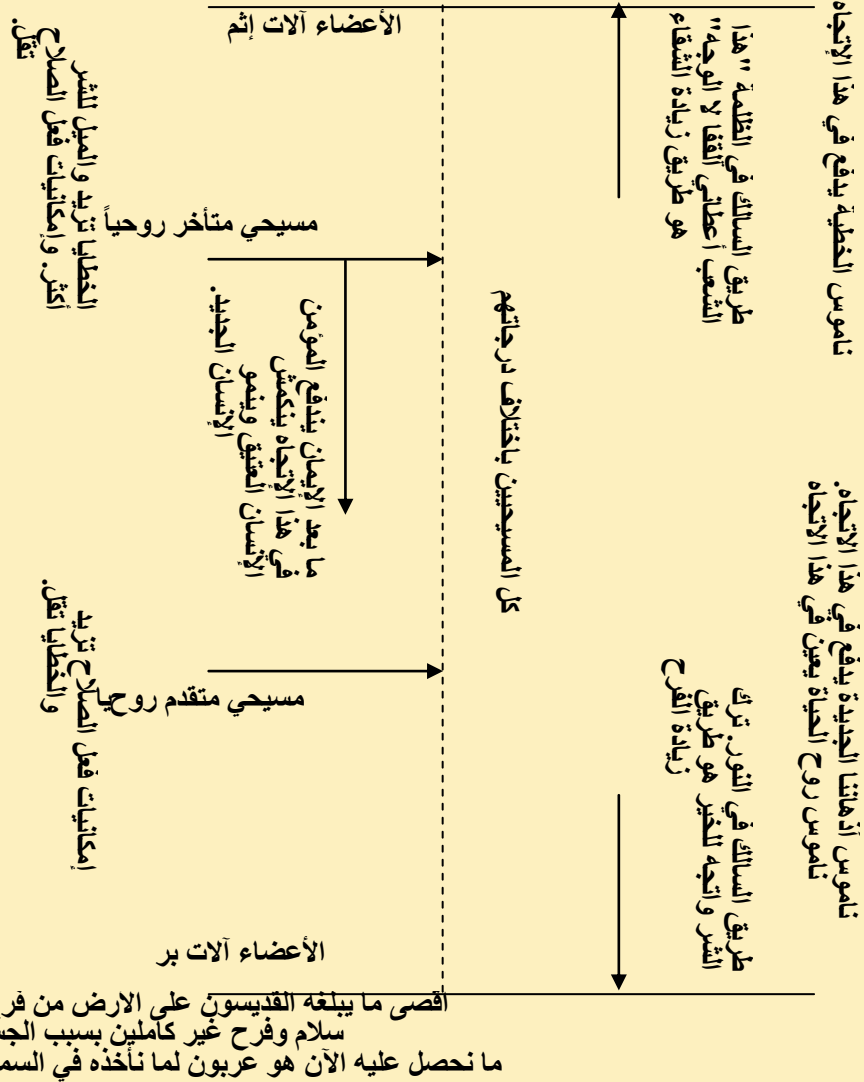 الأعضاء آلات إثم
ناموس الخطية يدفع في هذا الإتجاه
طريق السالك في الظلمة "هذا
الشعب أعطاني القفا لا الوجه"
هو طريق زيادة الشقاء
الخطايا تزيد والميل للشر
أكثر. وإمكانيات فعل الصلاح
تقل.
مسيحي متأخر روحياً
ما بعد الإيمان يندفع المؤمن
في هذا الإتجاه ينكمش
الإنسان العتيق وينمو
الإنسان الجديد.
كل المسيحيين باختلاف درجاتهم
ناموس أذهاننا الجديدة يدفع في هذا الاتجاه.
ناموس روح الحياة يعين في هذا الاتجاه
طريق السالك في النور. ترك
الشر واتجه للخير هو طريق
زيادة الفرح
مسيحي متقدم روحيا
إمكانيات فعل الصلاح تزيد
والخطايا تقل.
الأعضاء آلات بر
أقصى ما يبلغه القديسون على الارض من
سلام وفرح غير كاملين بسبب
ما نحصل عليه الآن هو عربون لما نأخذه في